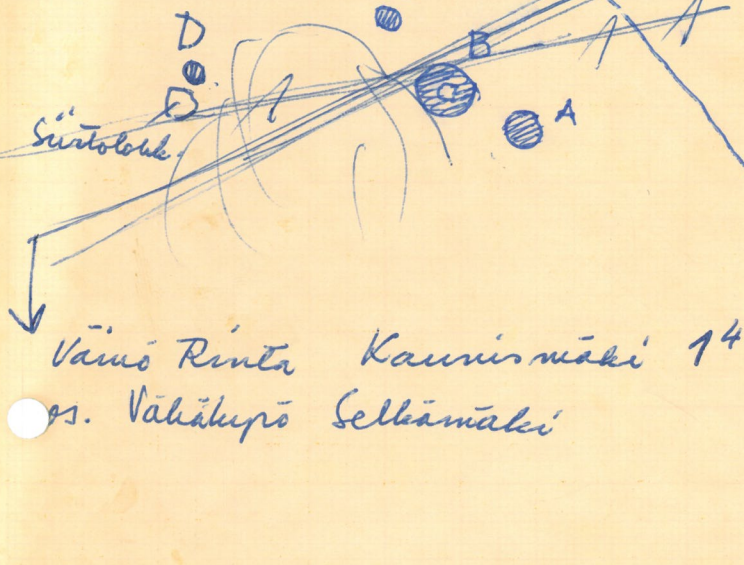 D
B
A
Siirtolohk.
Väinö Rinta Kaunismäki 1⁴
os. Vähäkyrö Selkämäki